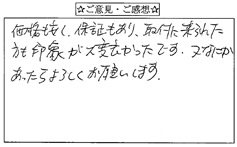 ☆ご意見・ご感想☆
価格も安く、保証もあり、取付に来られた
方も印象が大変良かったです。又なにか
あったらよろしくお願いします。